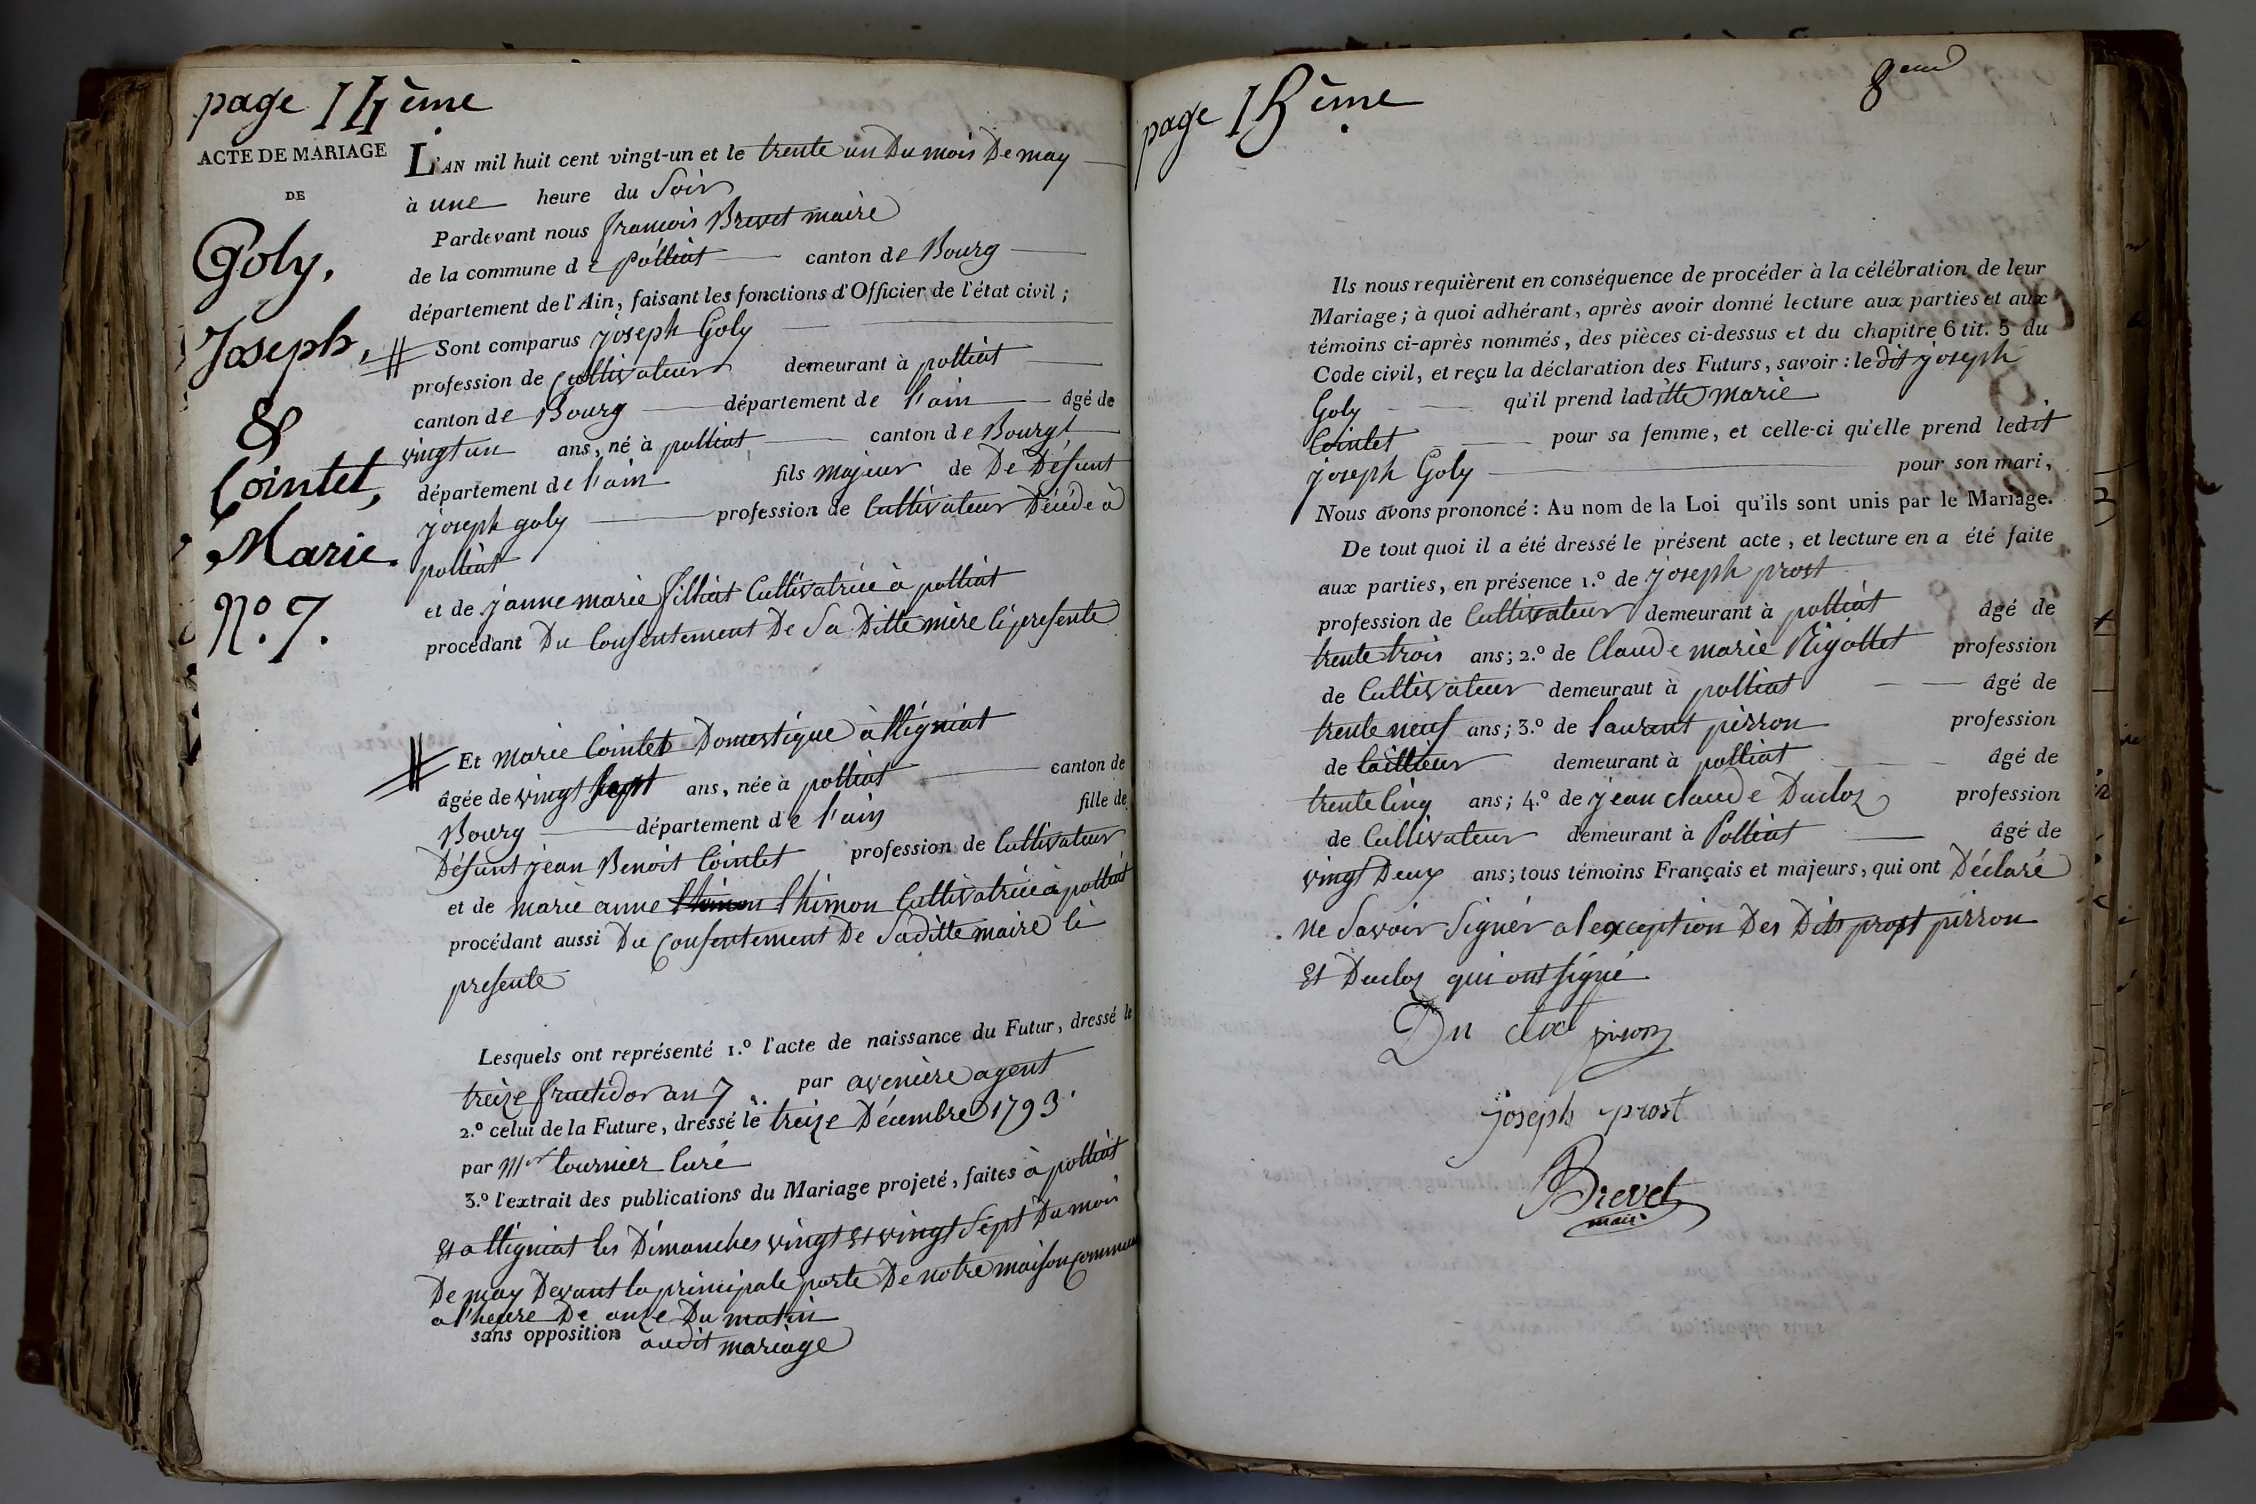 page 14ème
ACTE DE MARIAGE
DE
Goly,
Joseph,
&
Cointet,
Marie.
N.º 7.
L'AN mil huit cent vingt-un et le trente un Du mois De may
à une heure du Soir
Pardevant nous françois Brevet maire
de la commune de polliat canton de Bourg
département de l'Ain, faisant les fonctions d'Officier de l'état civil ;
Sont comparus joseph Goly
profession de Cultivateur demeurant à polliat
canton de Bourg département de l'ain âgé de
vingt un ans, né à polliat canton de Bourg
département de l'ain fils majeur de De Défunt
joseph goly profession de Cultivateur Décédé à
polliat
et de janne marie filliat Cultivatrice à polliat
procédant Du Consentement De Sa Ditte mère Ci presente
Et Marie Cointet Domestique à Attigniat
âgée de vingt Sept ans, née à polliat canton de
Bourg département de l'ain fille de
Défunt jean Benoit Cointet profession de Cultivateur
et de marie anne Chimon Cultivatrice à polliat
procédant aussi Du Consentement De Saditte maire Ci
presente
Lesquels ont représenté 1.º l'acte de naissance du Futur, dressé le
treize fructidor an 7 par avenière agent
2.º celui de la Future, dressé le treize Décembre 1793
par Mr tournier Curé
3.º l'extrait des publications du Mariage projeté, faites à polliat
Et a Attigniat les Dimanches vingt Et vingt Sept Du mois
De may Devant la principale porte De notre maison commune
a l'heure De onze Du matin
sans opposition audit mariage
page 15ème
8eme
Ils nous requièrent en conséquence de procéder à la célébration de leur
Mariage ; à quoi adhérant, après avoir donné lecture aux parties et aux
témoins ci-après nommés, des pièces ci-dessus et du chapitre 6 tit. 5 du
Code civil, et reçu la déclaration des Futurs, savoir : le dit joseph
Goly qu'il prend laditte Marie
Cointet pour sa femme, et celle-ci qu'elle prend ledit
joseph Goly pour son mari,
Nous avons prononcé : Au nom de la Loi qu'ils sont unis par le Mariage.
De tout quoi il a été dressé le présent acte, et lecture en a été faite
aux parties, en présence 1.º de joseph prost
profession de Cultivateur demeurant à polliat âgé de
trente trois ans ; 2.º de Claude marie Rigollet profession
de Cultivateur demeuraut à polliat âgé de
trente neuf ans ; 3.º de laurent pirron profession
de tailleur demeurant à polliat âgé de
trente Cinq ans ; 4.º de jean claude Ducloz profession
de Cultivateur demeurant à Polliat âgé de
vingt Deux ans ; tous témoins Français et majeurs, qui ont Déclaré
ne Savoir Signér a l'exception Des Dits prost pirron
Et Ducloz qui ont signé
Du cloz piron
joseph prost
Brevet
maire